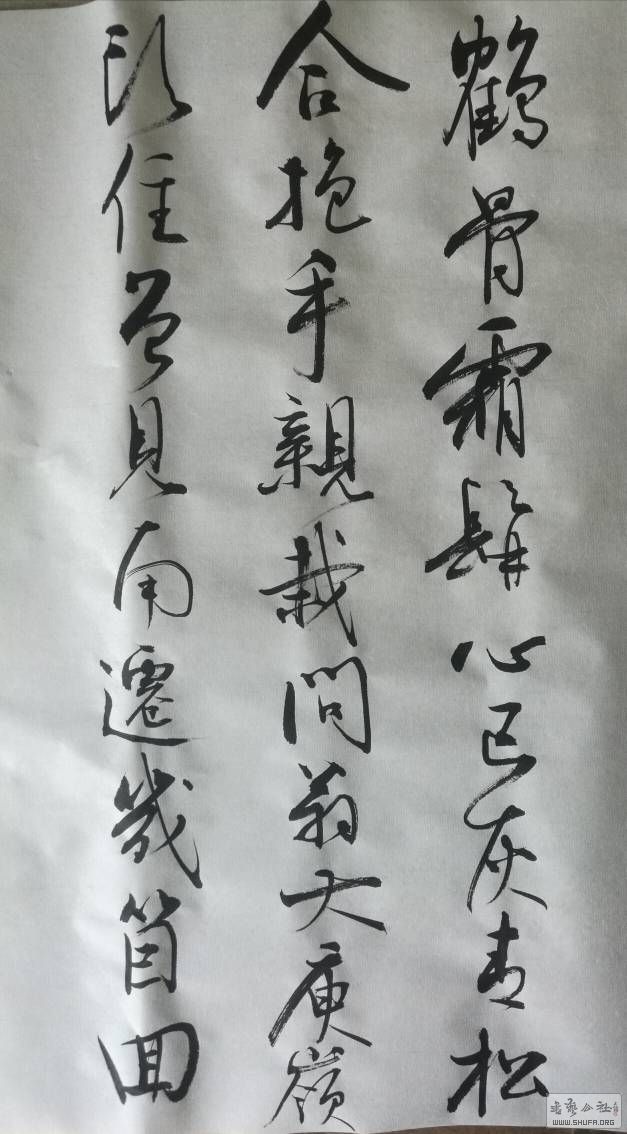 鶴骨霜髯心已灰青松
合抱手親栽問翁大庾嶺
頭住曾見南遷幾箇回
WWW.SHUFA.ORG